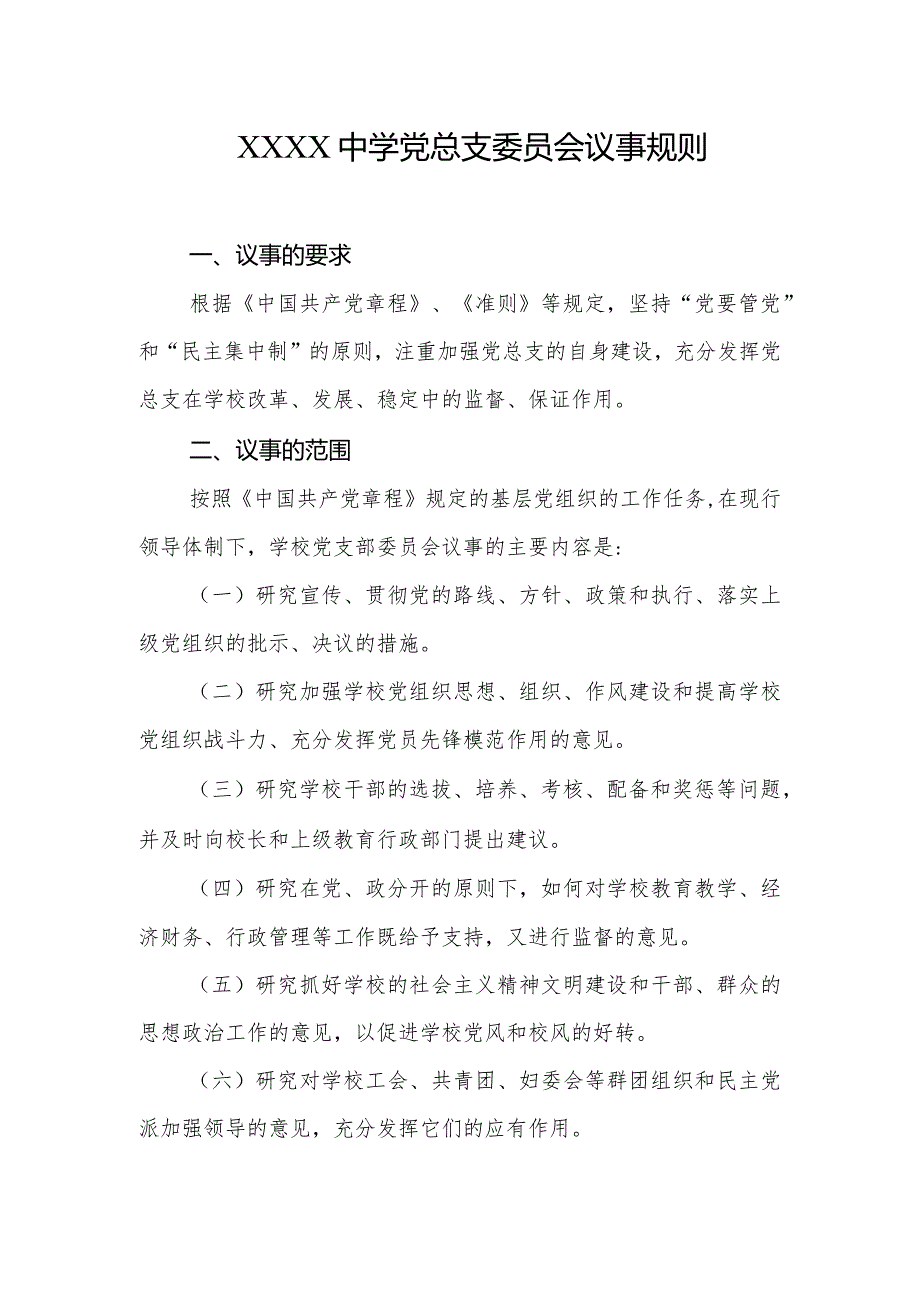 XXXX中学党总支委员会议事规则
一、议事的要求
根据《中国共产党章程》、《准则》等规定，坚持“党要管党”
和“民主集中制”的原则，注重加强党总支的自身建设，充分发挥党
总支在学校改革、发展、稳定中的监督、保证作用。
二、议事的范围
按照《中国共产党章程》规定的基层党组织的工作任务,在现行
领导体制下，学校党支部委员会议事的主要内容是:
（一）研究宣传、贯彻党的路线、方针、政策和执行、落实上
级党组织的批示、决议的措施。
（二）研究加强学校党组织思想、组织、作风建设和提高学校
党组织战斗力、充分发挥党员先锋模范作用的意见。
（三）研究学校干部的选拔、培养、考核、配备和奖惩等问题，
并及时向校长和上级教育行政部门提出建议。
（四）研究在党、政分开的原则下，如何对学校教育教学、经
济财务、行政管理等工作既给予支持，又进行监督的意见。
（五）研究抓好学校的社会主义精神文明建设和干部、群众的
思想政治工作的意见，以促进学校党风和校风的好转。
（六）研究对学校工会、共青团、妇委会等群团组织和民主党
派加强领导的意见，充分发挥它们的应有作用。